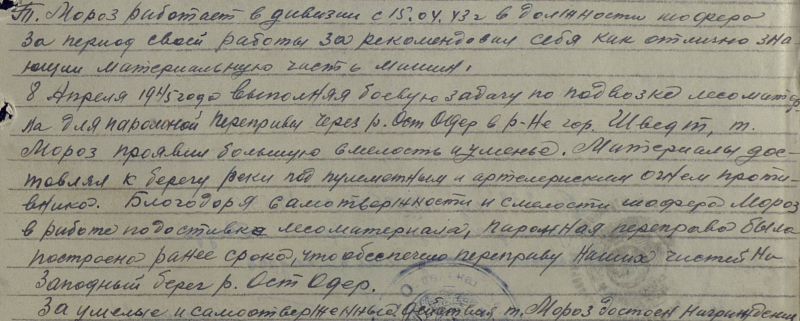 Т. Мороз работает в дивизии с 15.04.43г в должности шофера
За период своей работы зарекомендовал себя как отлично зна-
ющий материальную часть машин.
8 Апреля 1945 года выполняя боевую задачу по подвозке лесоматери-
ла для паромной переправы через р. Ост Одер в р-не гор. Шведт, т.
Мороз проявил большую смелость и уменье. Материалы дос-
тавлял к берегу реки под пулеметным и артелериским огнем проти-
вника. Благодоря самотвержности и смелости шофера Мороз
в работе по доставке лесоматериала, паромная переправа была
построена ранее срока, что обеспечило переправу наших частей на
Западный берег р. Ост Одер.
За умелые и самоотверженные действия т. Мороз достоен награждения